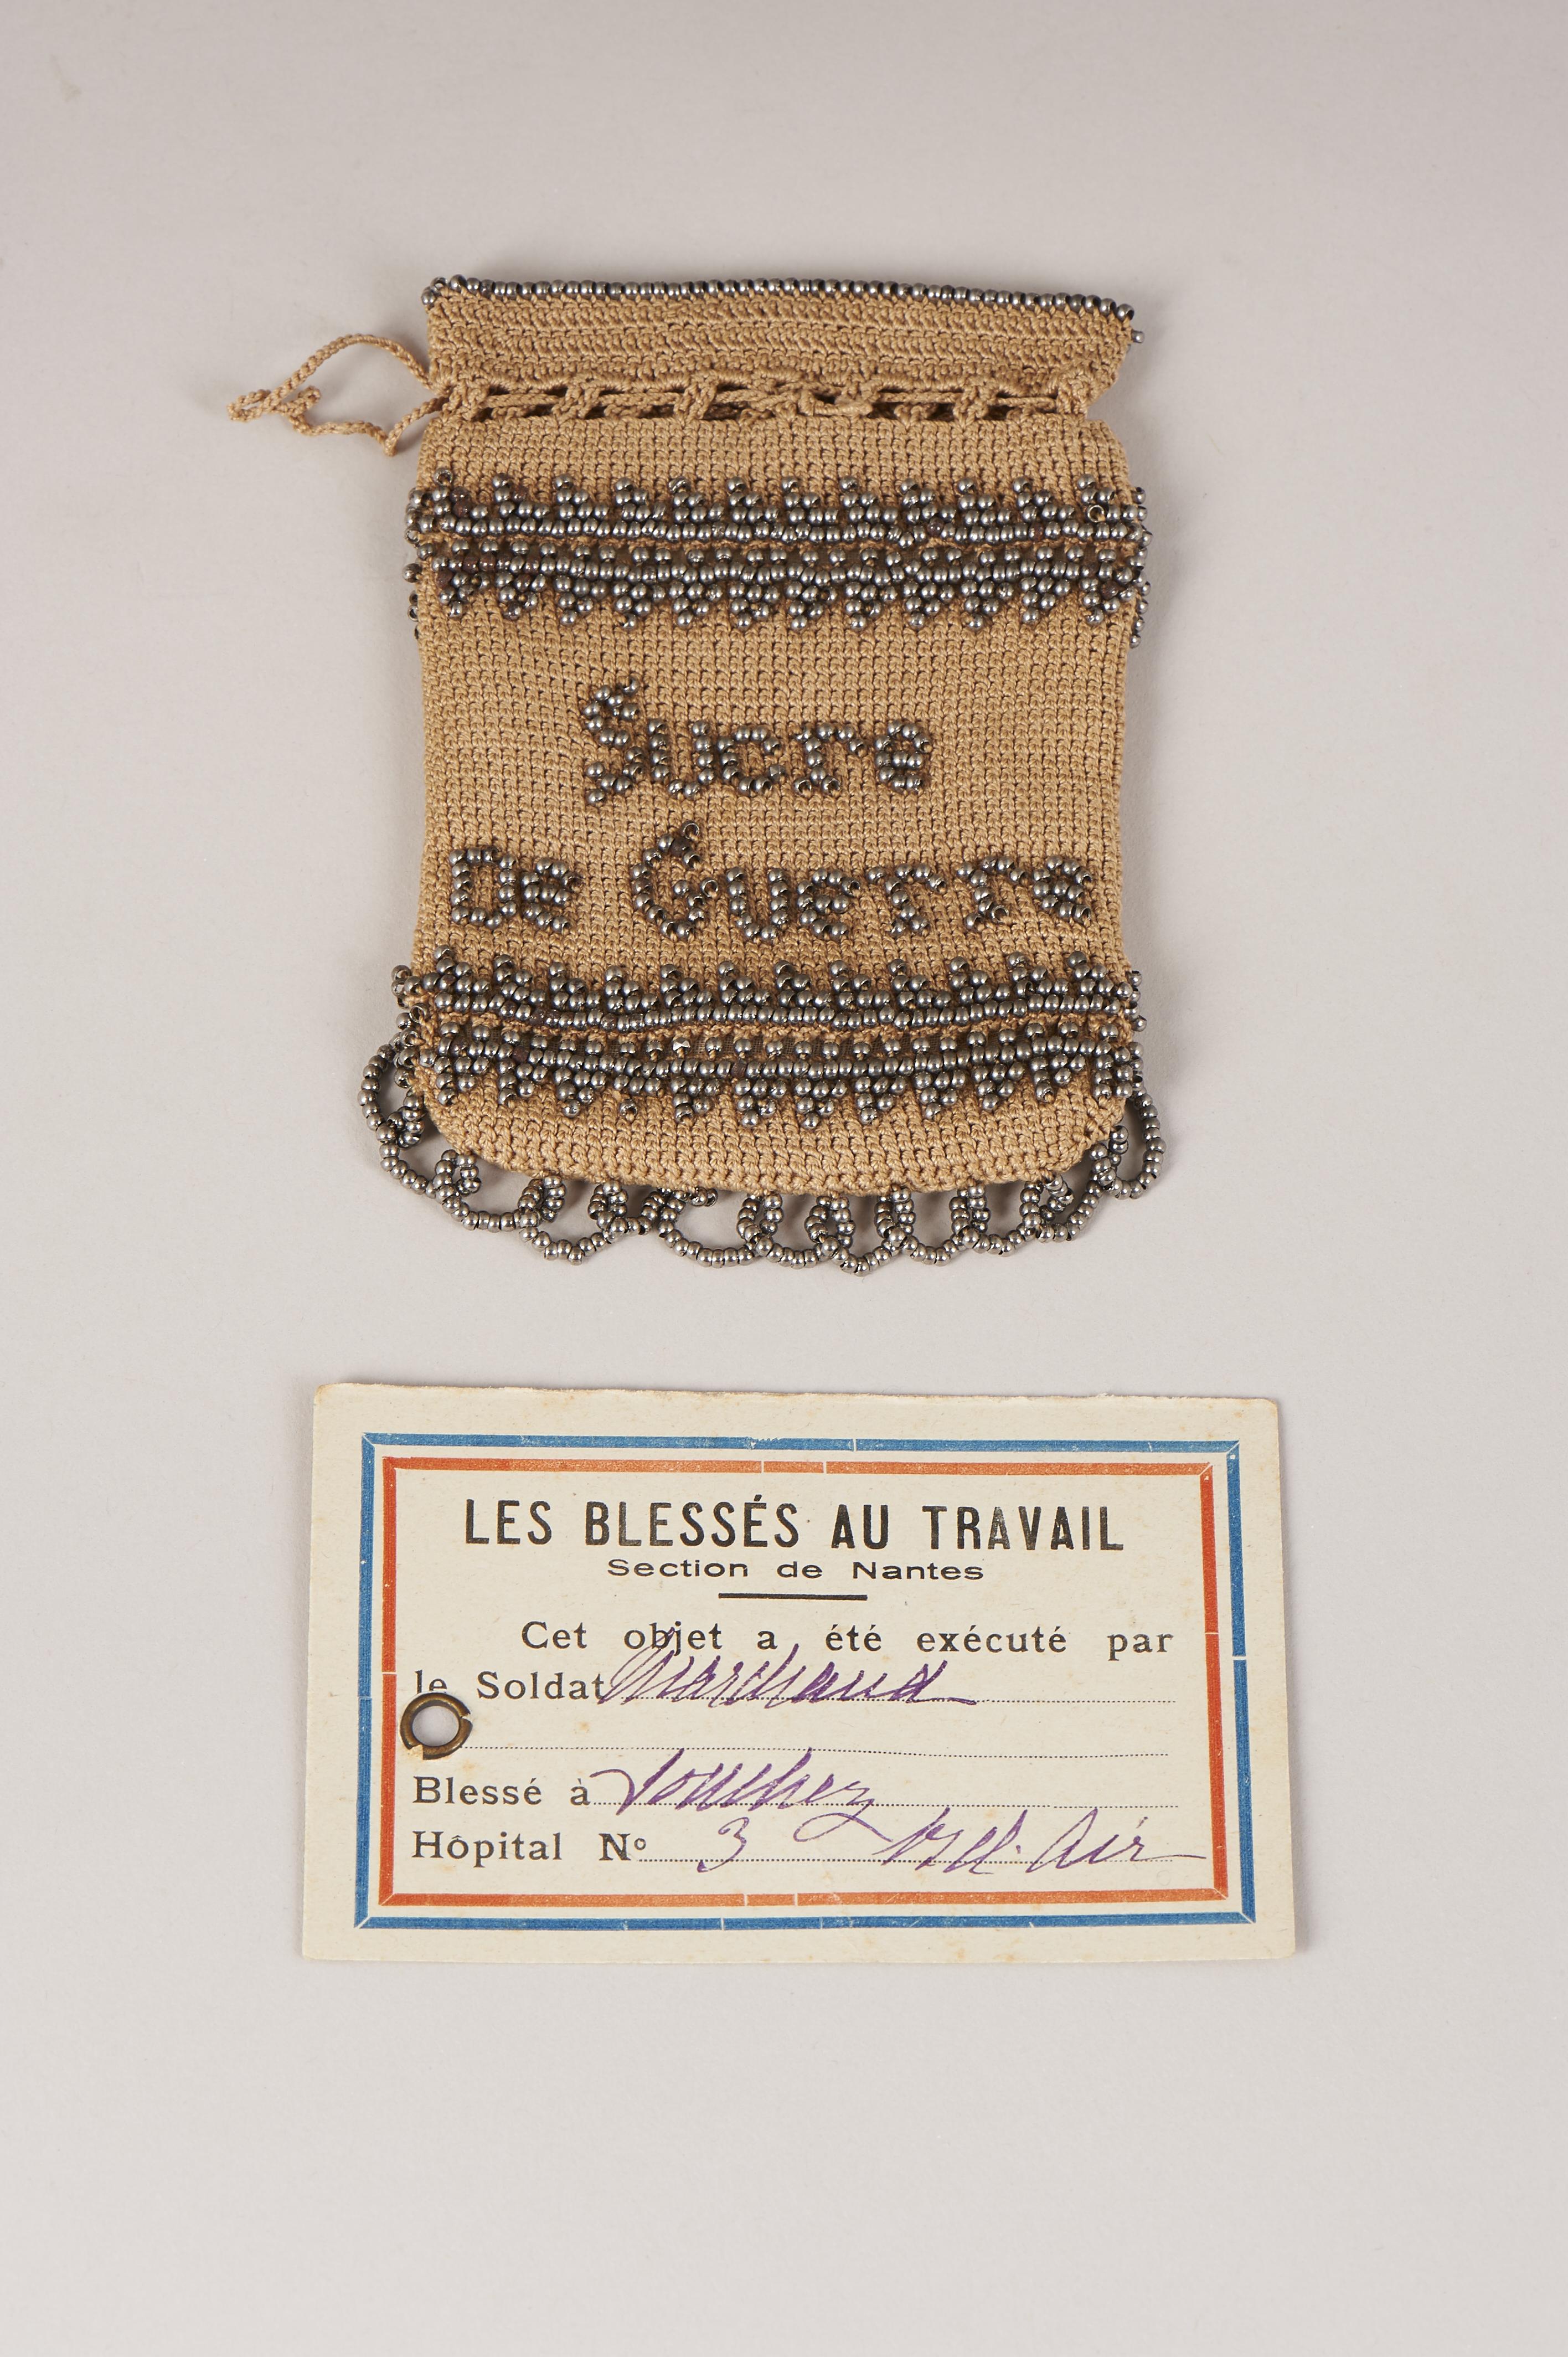 Sucre
De Guerre
LES BLESSÉS AU TRAVAIL
Section de Nantes
Cet objet a été exécuté par
le Soldat Marchand
Blessé à Souchez
Hôpital Nº 3 Bel-Air